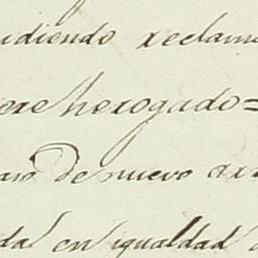 idiendo reclam
ere herogado=
aso de nuevo arr
da en igualdad d